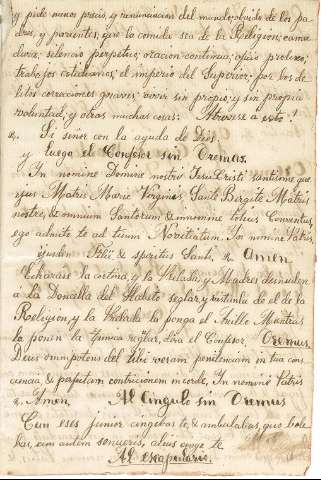 y pide menos precio, y renunciacion del mundo: olvido de los pa
dres, y parientes, que la comida sea de la Religion; cama
dura; silencio perpetuo; oracion continua; oficio prolixo;
trabajos cotidianos; el imperio del Superior; por los de
litos correcciones graves; vivir sin propio, y sin propria
voluntad; y otras muchas cosas: Atrevese a esto?
R. Si señor con la ayuda de Dios.
y luego el Confesor sin Oremus.
In nomine Domine nostri Jesu Cristi santisime que
ejus Matris Marie Virginis Santi Birgite Matris
nostre, & omnium Santorum & innomine totius Conventus,
ego admito te ad tuum Novitiatum. In nomine Patris,
Filii & spiritus Santi, R. Amen
Echarase la cortina, y la Prelada, y Madres desnuden
á la Doncella del Habito seglar y vistanle de el de la
Religion, y la Prelada la ponga el Anillo Mientras
la ponen la tunica reglar, dira el Confesor, Oremus.
Deus omnipotens det tibi veram penitenciam in tua cons
ciencia, & contricionem incorde, In nomine Patris
R. Amen. Al Cingulo sin Oremus
Cum eses junior cingebas te, & ambulabas, quo bole
bas, cum autem senueris, alius cinget te
Al escapulario.